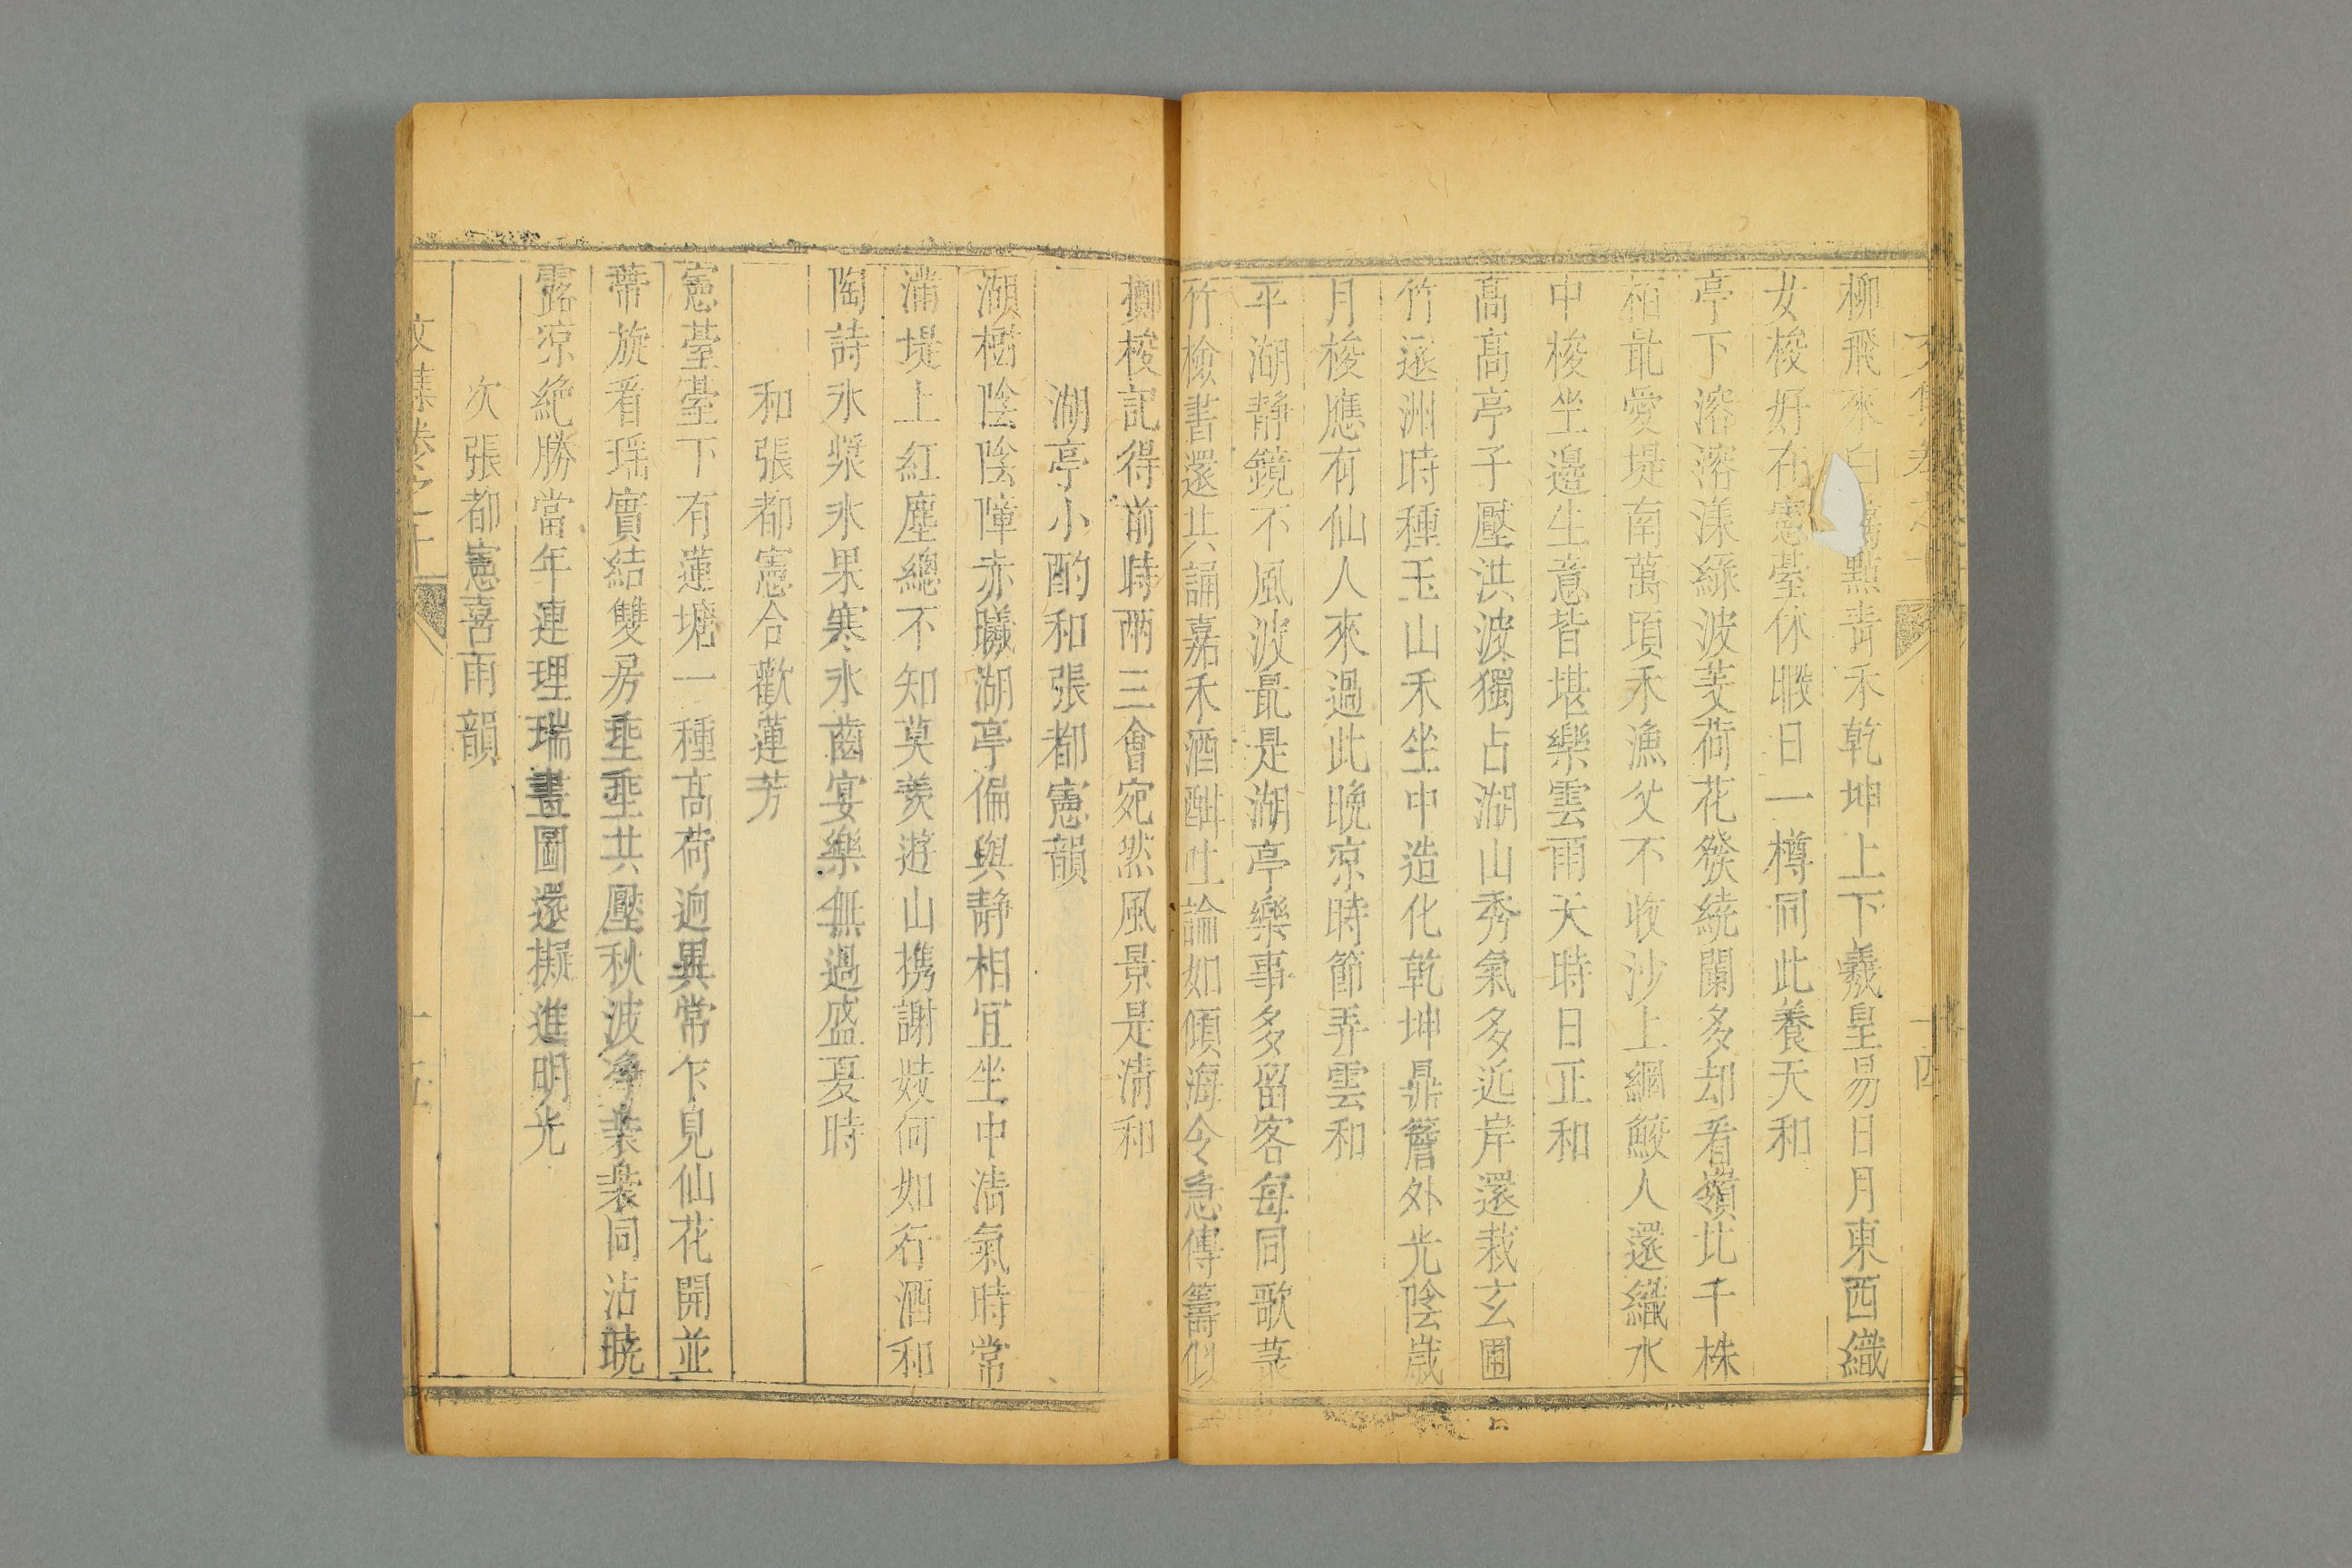 柳飛來白鷺點青禾乾坤上下羲皇易日月東西織
女梭好在憲臺休暇日一樽同此養天和
亭下溶溶漾綠波芰荷花發繞闌多却看嶺北千株
柏最愛堤南萬頃禾漁父不收沙上網鮫人還織水
中梭坐邊生意皆堪樂雲雨天時日正和
高高亭子壓洪波獨占湖山秀氣多近岸還栽玄圃
竹遶洲時種玉山禾坐中造化乾坤鼎簷外光陰歲
月梭應有仙人來過此晚凉時節弄雲和
平湖靜鏡不風波最是湖亭樂事多留客每同歌菉
竹檢書還共誦嘉禾酒酣吐論如傾海令急傳籌似
擲梭記得前時兩三會宛然風景是清和
湖亭小酌和張都憲韻
湖樹陰陰障赤曦湖亭偏與靜相宜坐中清氣時常
滿堤上紅塵總不知莫羨遊山携謝妓何如行酒和
陶詩氷漿氷果寒氷齒宴樂無過盛夏時
和張都憲合歡蓮芳
憲臺臺下有蓮塘一種高荷迥異常乍見仙花開並
蒂旋看瑶實結雙房垂垂共壓秋波淨裊裊同沾曉
露凉絶勝當年連理瑞畫圖還擬進明光
次張都憲喜雨韻
文集卷之十
十五